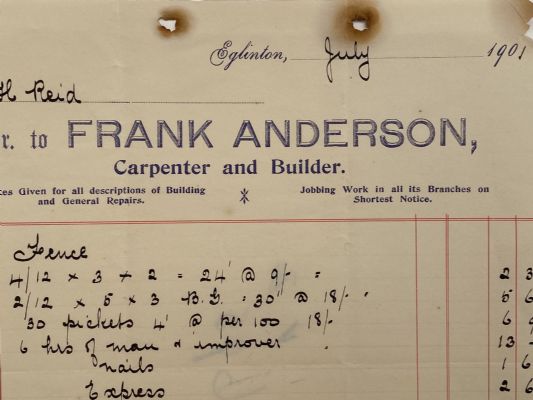 Eglinton, July 1901
H Reid
r. to FRANK ANDERSON,
Carpenter and Builder.
ces Given for all descriptions of Building and General Repairs.
Jobbing Work in all its Branches on Shortest Notice.
Fence
4/12 x 3 x 2 = 24' @ 9/- = 2 3
2/12 x 5 x 3 B.G. = 30' @ 18/- " 5 6
30 pickets 4' @ per 100 18/- 6
6 hrs of man & improver 13
nails 1 6
Express 2 6